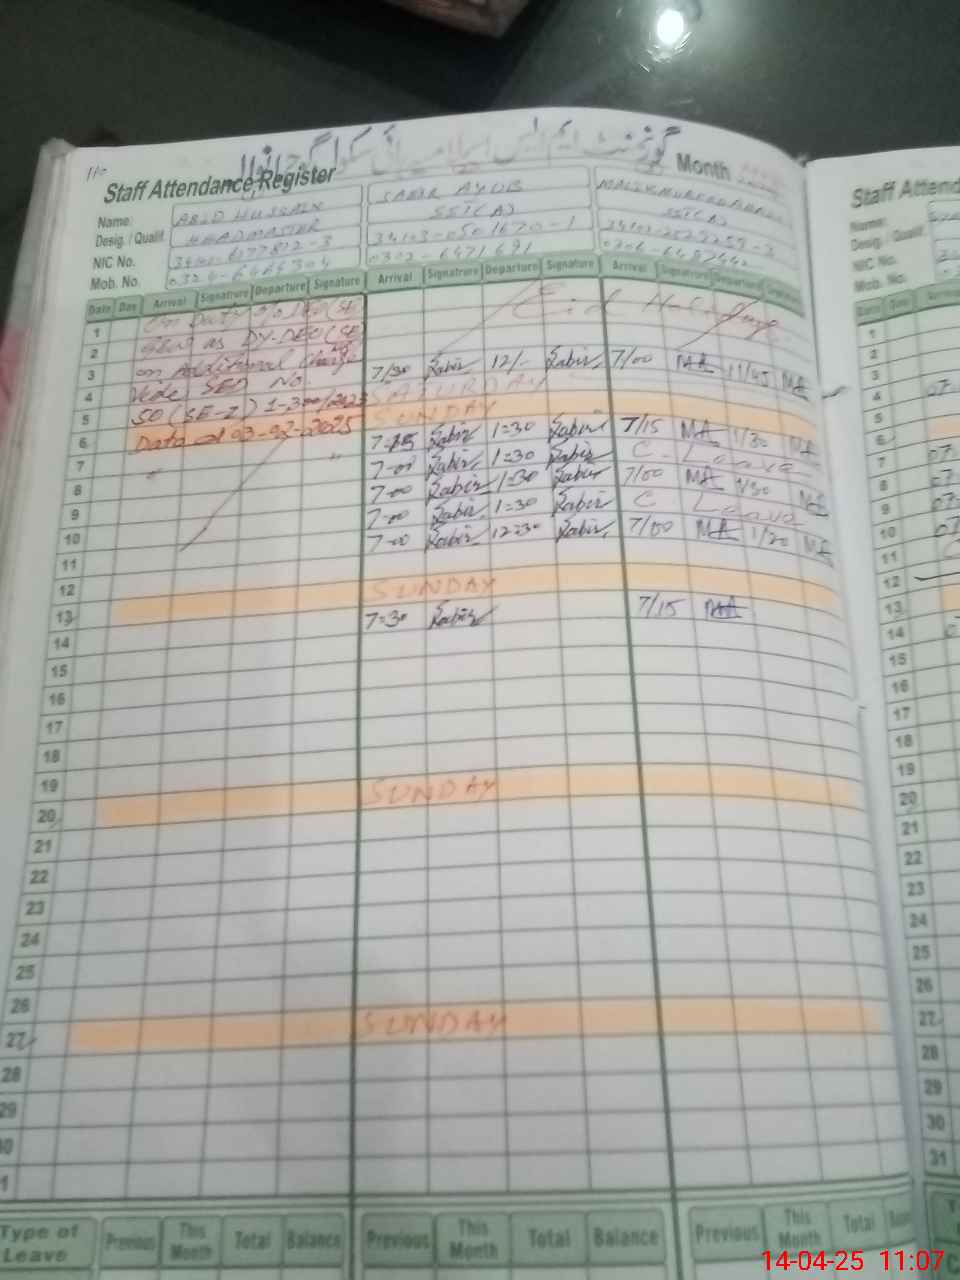 110
Staff Attendance Register
Month
Name: ABID HUSSAIN SABIR AYUB
Desig. / Qualif. HEADMASTER SST(A) SST(A)
NIC No. 34103-0501670-1
Mob. No. 0324-6464304 0302-6471691
Date Day Arrival Signature Departure Signature Arrival Signature Departure Signature Arrival Signature Departure Signature
1 On Duty Eid Holidays
2 as DY-DEO (SE)
3 on Additional Charge 7/30 Sabir 12/- Sabir 7/00 MA 11/45 MA
4 Vide SED No. SATURDAY
5 SO (SE-I) 1-300/2023 SUNDAY
6 Dated 03-02-2025 7-15 Sabir 1=30 Sabir 7/15 MA 1/30 MA
7 7-00 Sabir 1=30 Sabir C-Leave
8 7-00 Sabir 1=30 Sabir 7/00 MA 1/30 MA
9 7-00 Sabir 1=30 Sabir C Leave
10 7-00 Sabir 12=30 Sabir 7/00 MA 1/20 MA
11
12 SUNDAY
13 7=30 Sabir 7/15 MA
14
15
16
17
18
19 SUNDAY
20
21
22
23
24
25
26 SUNDAY
27
28
29
Type of Leave Previous This Month Total Balance Previous This Month Total Balance Previous This Month Total
Staff Attend
Name:
Desig. / Qualif.
NIC No.
Mob. No.
Date Day
1
2
3
4
5
6
7
8
9
10
11
12
13
14
15
16
17
18
19
20
21
22
23
24
25
26
27
28
29
30
31
14-04-25 11:07